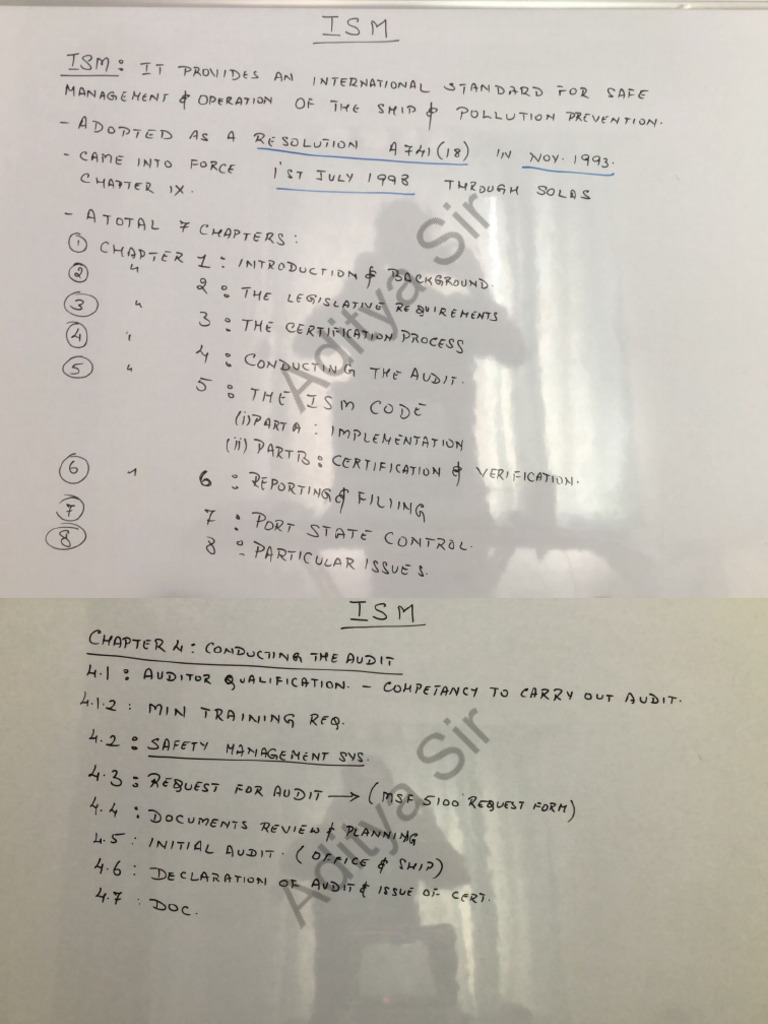 ISM
ISM: IT PROVIDES AN INTERNATIONAL STANDARD FOR SAFE
MANAGEMENT & OPERATION OF THE SHIP & POLLUTION PREVENTION.
- ADOPTED AS A RESOLUTION A741(18) IN NOV. 1993.
- CAME INTO FORCE 1'ST JULY 1998 THROUGH SOLAS
CHAPTER IX.
- A TOTAL 7 CHAPTERS:
① CHAPTER 1: INTRODUCTION & BACKGROUND.
② " 2: THE LEGISLATIVE REQUIREMENTS
③ " 3: THE CERTIFICATION PROCESS
④ " 4: CONDUCTING THE AUDIT.
⑤ " 5: THE ISM CODE
(i) PART A: IMPLEMENTATION
(ii) PART B: CERTIFICATION & VERIFICATION.
⑥ " 6: REPORTING & FILIING
⑦ 7: PORT STATE CONTROL.
⑧ 8: PARTICULAR ISSUES.
Aditya Sir
ISM
CHAPTER 4: CONDUCTING THE AUDIT
4.1: AUDITOR QUALIFICATION. - COMPETANCY TO CARRY OUT AUDIT.
4.1.2: MIN TRAINING REQ.
4.2: SAFETY MANAGEMENT SYS.
4.3: REQUEST FOR AUDIT → (MSF 5100 REQUEST FORM)
4.4: DOCUMENTS REVIEW & PLANNING
4.5: INITIAL AUDIT. (OFFICE & SHIP)
4.6: DECLARATION OF AUDIT & ISSUE OF CERT.
4.7: DOC.
Aditya Sir